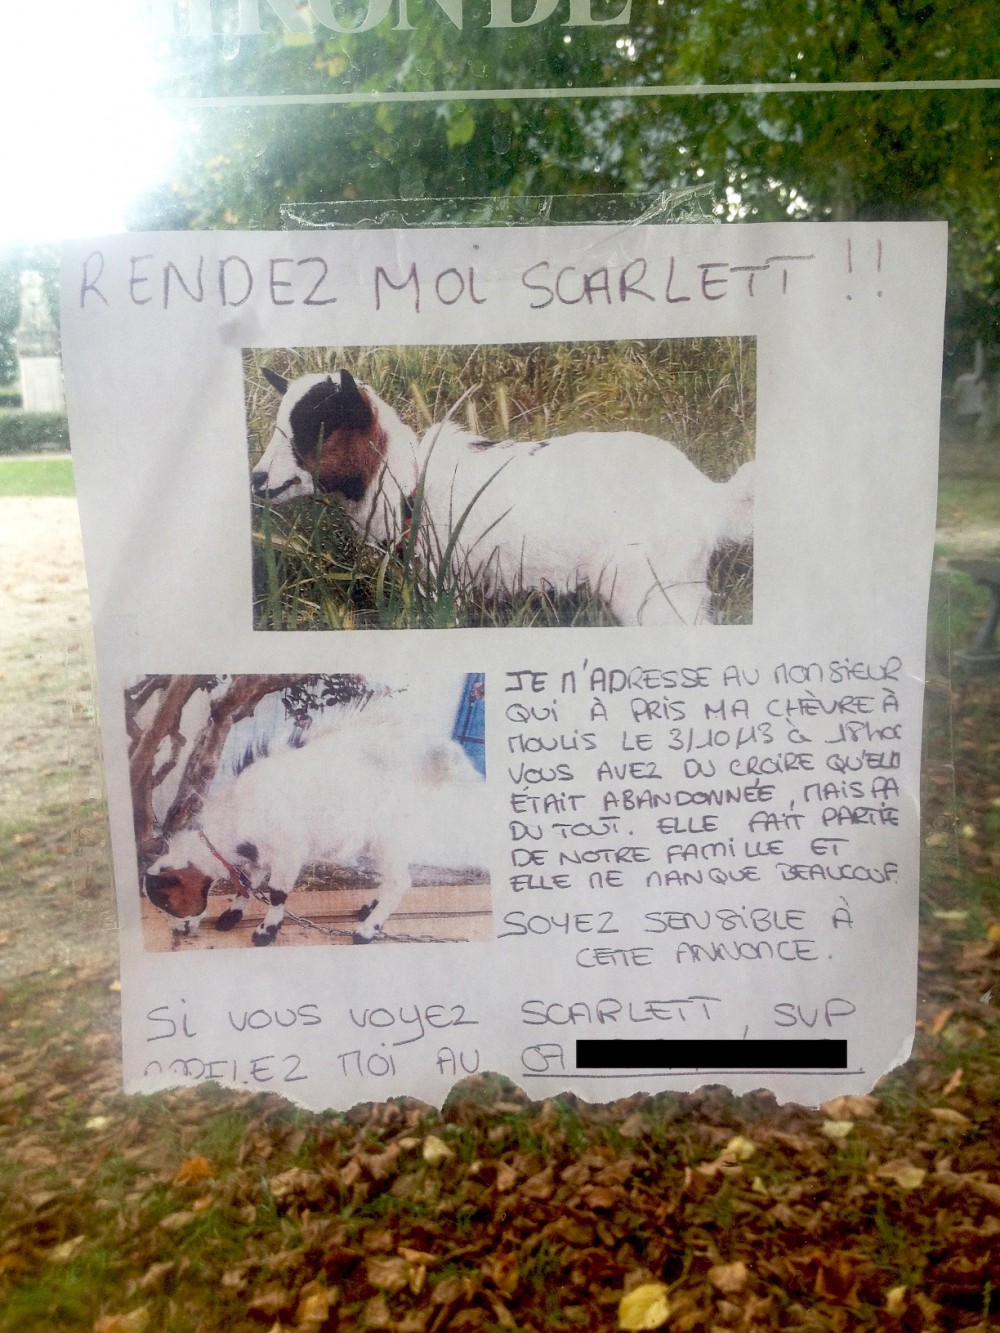 RENDEZ MOI SCARLETT !!
JE M'ADRESSE AU MONSIEUR
QUI À PRIS MA CHÈVRE À
MOULIS LE 3/10/13 à 18h00
VOUS AVEZ DU CROIRE QU'ELLE
ÉTAIT ABANDONNÉE, MAIS PA
DU TOUT. ELLE FAIT PARTIE
DE NOTRE FAMILLE ET
ELLE ME MANQUE BEAUCOUP.
SOYEZ SENSIBLE À
CETTE ANNONCE.
Si VOUS VOYEZ SCARLETT, SVP
APPELEZ MOI AU 07